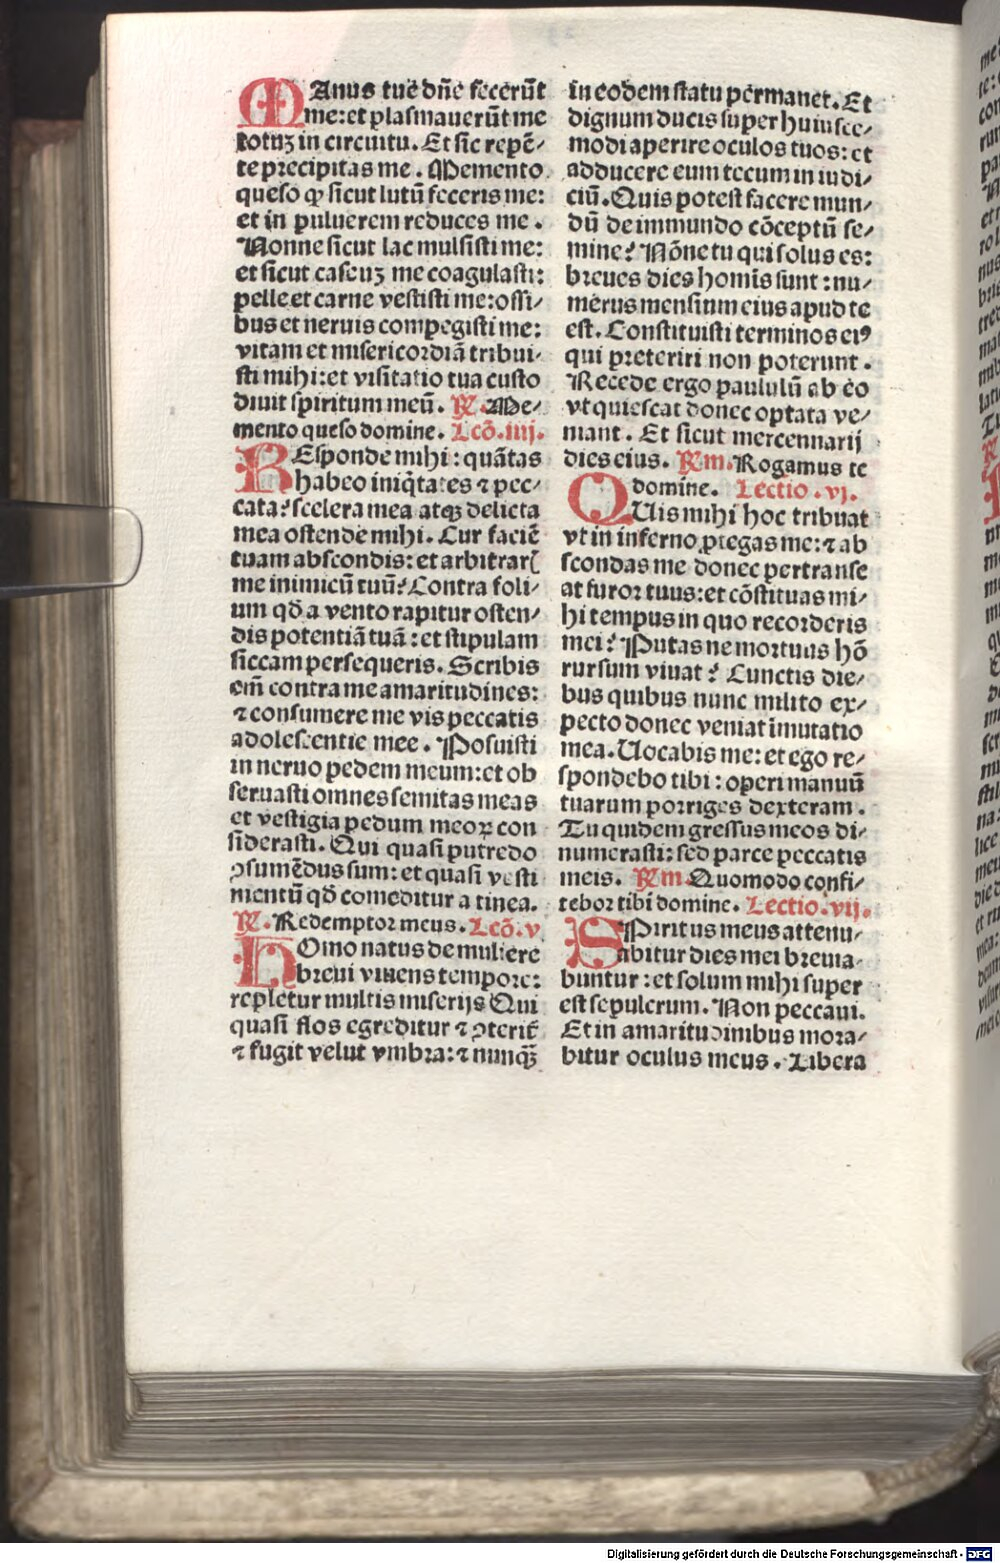 MAnus tue dñe fecerūt
me: et plasmauerūt me
totuʒ in circuitu. Et sic repē⸗
te precipitas me. Memento
queso ꝙ sicut lutū feceris me:
et in puluerem reduces me.
Nonne sicut lac mulsisti me:
et sicut caseuʒ me coagulasti:
pelle et carne vestisti me: ossi⸗
bus et neruis compegisti me:
vitam et misericordiā tribui⸗
sti mihi: et visitatio tua custo
diuit spiritum meū. ℞. Me⸗
mento queso domine. Lcō. iiij.
REsponde mihi: quātas
habeo iniq̇tates ⁊ pec⸗
cata? scelera mea atqꝫ delicta
mea ostende mihi. Cur faciē
tuam abscondis: et arbitrarꝭ
me inimicū tuū? Contra foli⸗
um qđ a vento rapitur osten⸗
dis potentiā tuā: et stipulam
siccam persequeris. Scribis
em̄ contra me amaritudines:
⁊ consumere me vis peccatis
adolescentie mee. Posuisti
in neruo pedem meum: et ob
seruasti omnes semitas meas
et vestigia pedum meoꝝ con
siderasti. Qui quasi putredo
ꝯsumēdus sum: et quasi vesti
mentū qđ comeditur a tinea.
℞. Redemptor meus. Lcō. v
HOmo natus de muliere
breui viuens tempore:
repletur multis miserijs Qui
quasi flos egreditur ⁊ ꝯterit̄
⁊ fugit velut vmbra: ⁊ nunqꝫ̄
in eodem statu permanet. Et
dignum ducis super huiusce⸗
modi aperire oculos tuos: et
adducere eum tecum in iudi⸗
ciū. Quis potest facere mun⸗
dū de immundo cōceptū se⸗
mine? Nōne tu qui solus es:
breues dies homīs sunt: nu⸗
merus mensium eius apud te
est. Constituisti terminos eiꝰ
qui preteriri non poterunt.
Recede ergo paululū ab eo
vt quiescat donec optata ve⸗
niant. Et sicut mercennarij
dies eius. ℞m. Rogamus te
domine. Lectio. vj.
QUis mihi hoc tribuat
vt in inferno ꝓtegas me: ⁊ ab
scondas me donec pertranse
at furor tuus: et cōstituas mi⸗
hi tempus in quo recorderis
mei? Putas ne mortuus hō
rursum viuat? Cunctis die⸗
bus quibus nunc milito ex⸗
pecto donec veniat īmutatio
mea. Uocabis me: et ego re⸗
spondebo tibi: operi manuū
tuarum porriges dexteram.
Tu quidem gressus meos di⸗
numerasti: sed parce peccatis
meis. ℞m. Quomodo confi⸗
tebor tibi domine. Lectio. vij.
SPiritus meus attenu⸗
abitur dies mei breuia⸗
buntur: et solum mihi super
est sepulcrum. Non peccaui.
Et in amaritudinibus mora⸗
bitur oculus meus. Libera
Digitalisierung gefördert durch die Deutsche Forschungsgemeinschaft - DFG